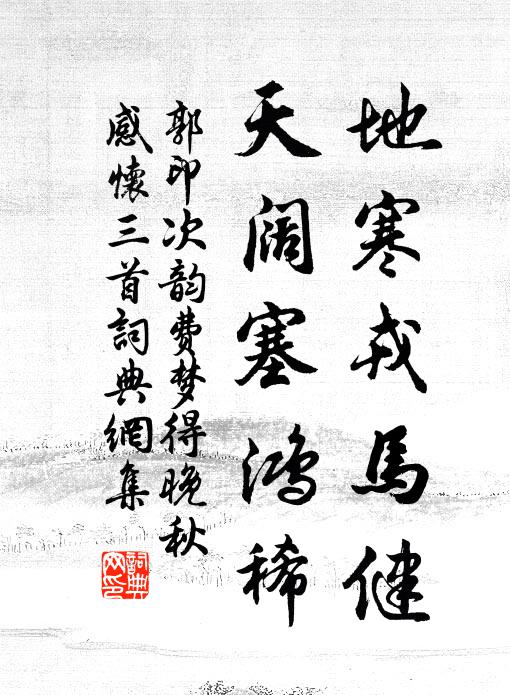 地寒戎馬健
天阔塞鸿稀
郭印次韵费梦得晚秋
感懷三首詞典網集
詞典
网印